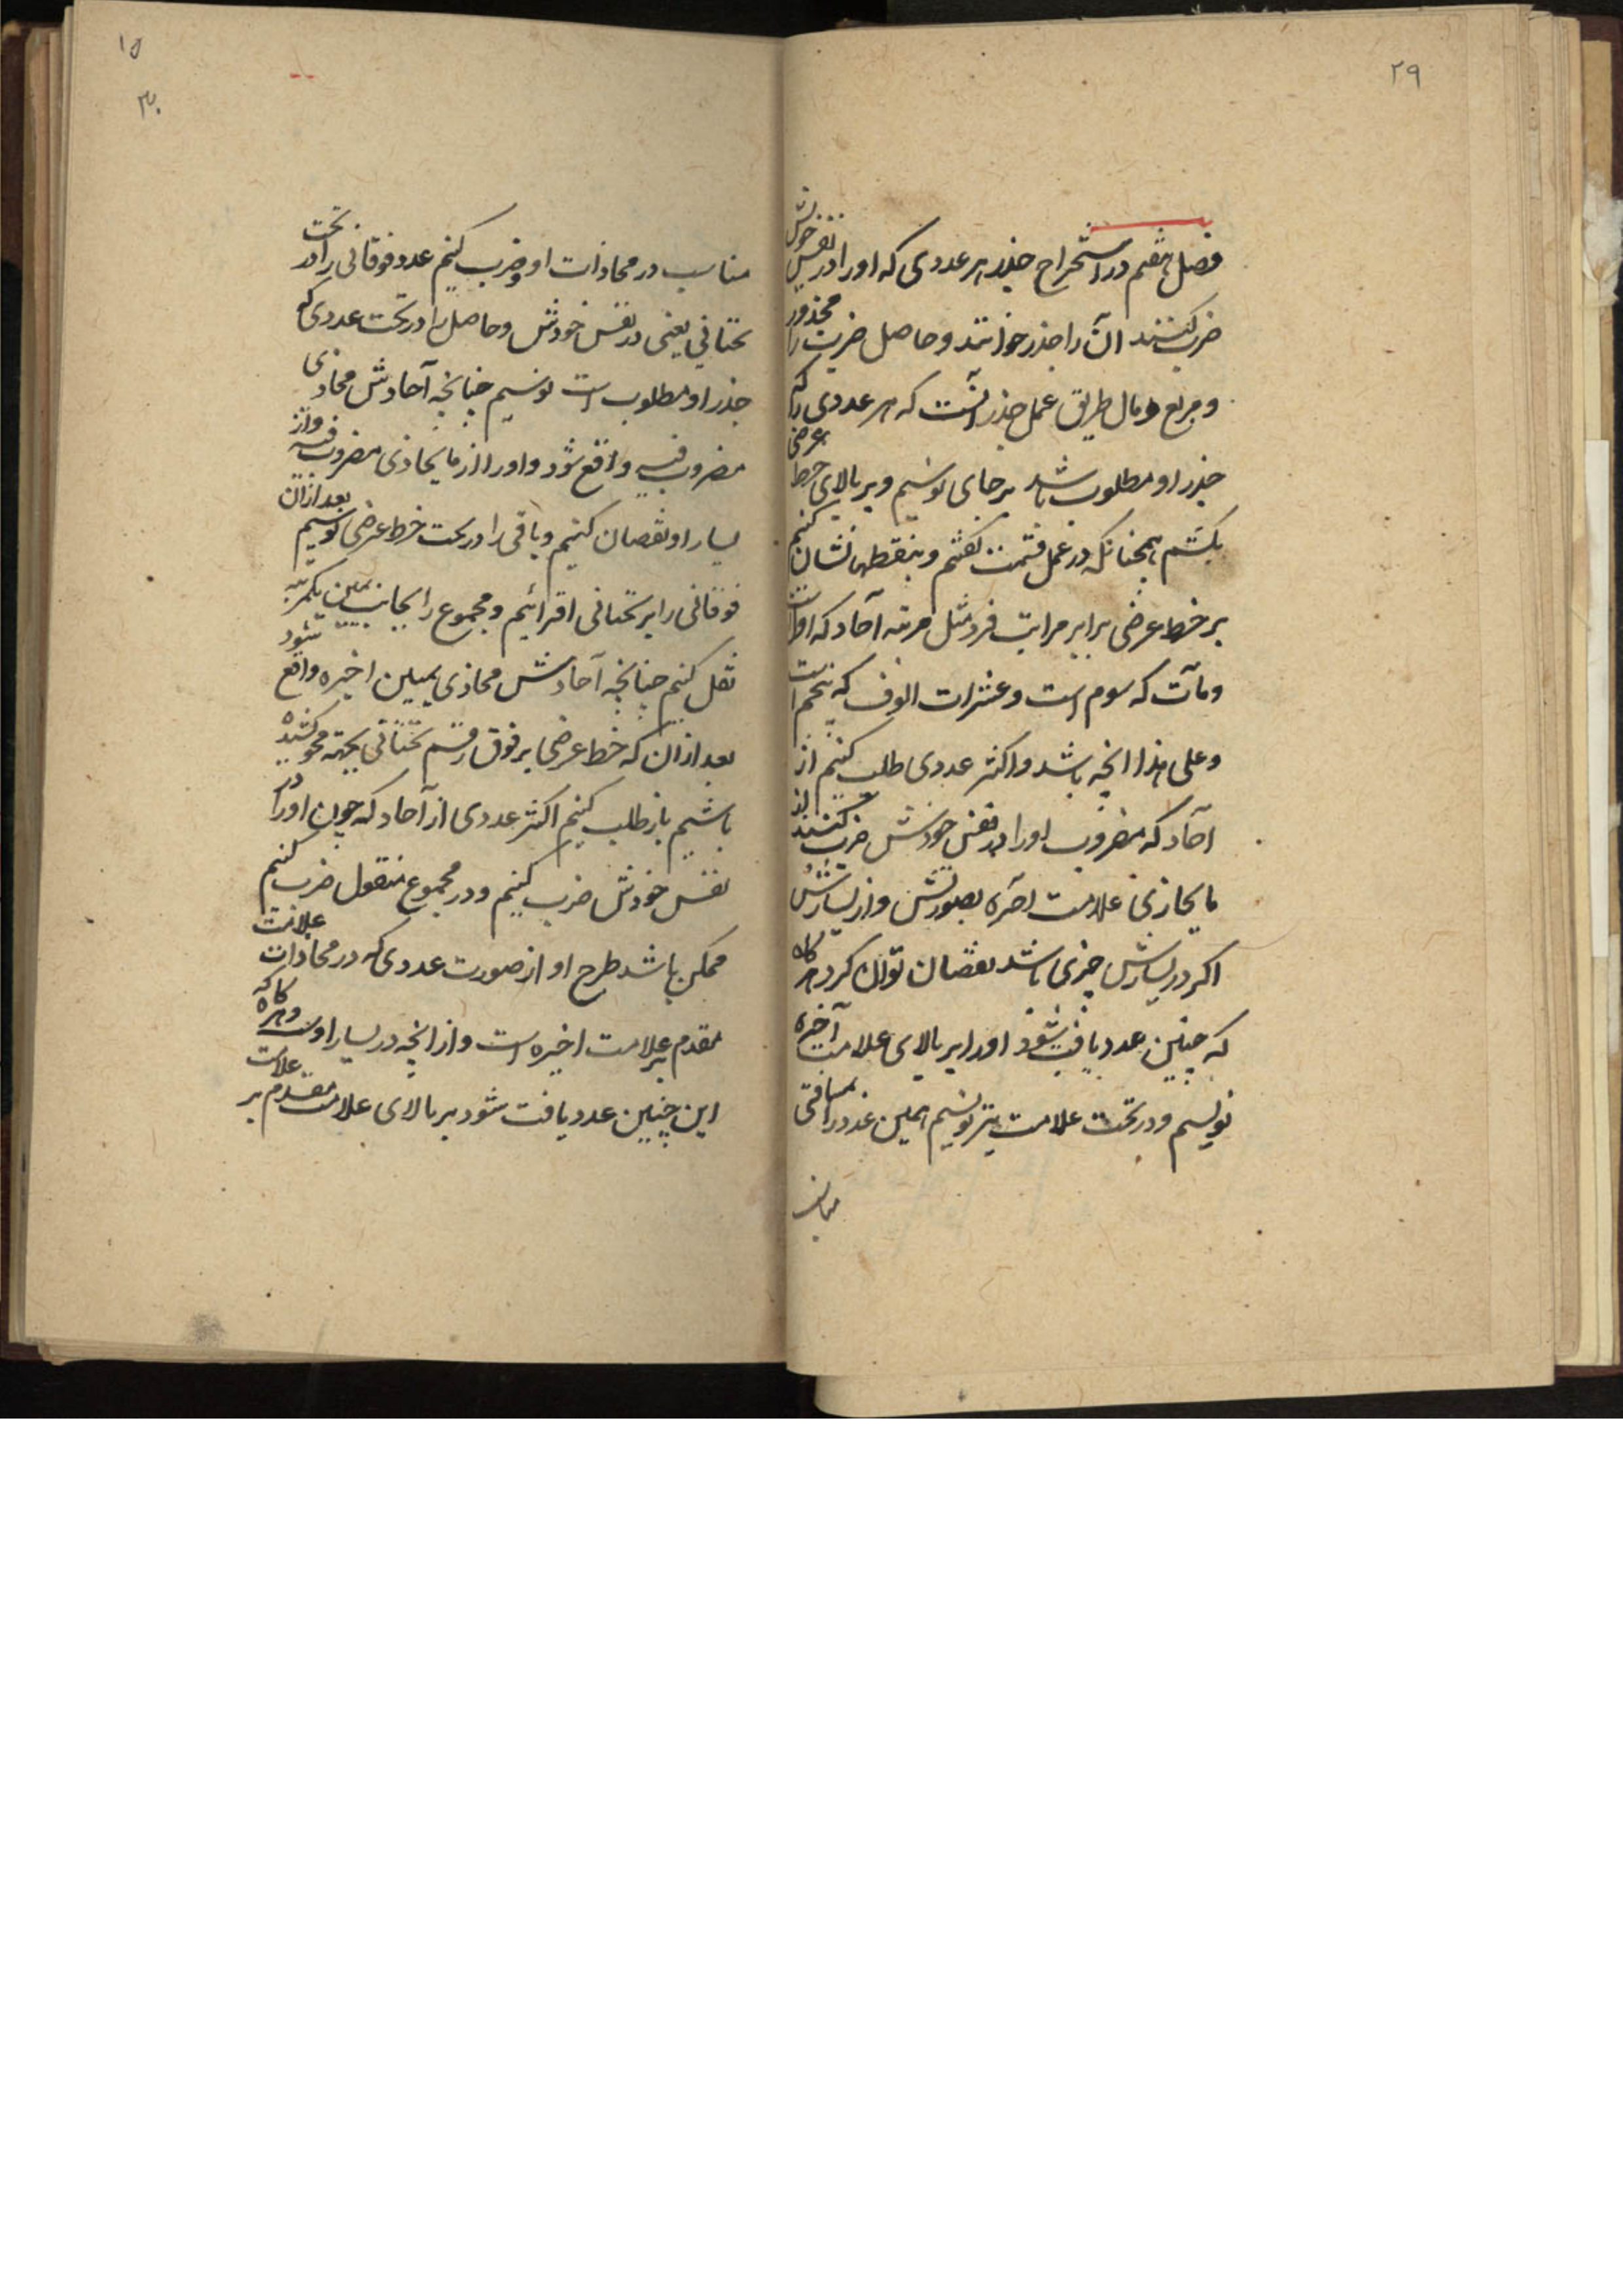 ۲۹
فصل هفتم در استخراج جذر هر عددی که او را در نفس خودش
ضرب کنند آن را جذر خوانند و حاصل ضرب را مجذور
و مربع و مال طریق عمل جذر آنست که هر عددی را که
جذر او مطلوب باشد بر جای نویسیم و بر بالای خط عرضی
بکشیم همچنانکه در عمل قسمت گفتیم و بنقطها نشان کنیم
بر خط عرضی برابر مراتب فرد مثل مرتبه آحاد که اول است
و مآت که سوم است و عشرات الوف که پنجم است
و علی هذا انچه باشد و اکثر عددی طلب کنیم از
آحاد که مضروب او را در نفس خودش ضرب کنند از
ما یحاذی علامت آخره بصورتش و از یسارش
اگر در یسارش چیزی باشد نقصان توان کرد هرگاه
که چنین عدد یافت شود او را بر بالای علامت آخیره
نویسیم و در تحت علامت نیز نویسیم همین عدد را بمسافتی
مناسب
۱۵
۳۰
مناسب در محاذات او و ضرب کنیم عدد فوقانی را در تحت
تحتانی یعنی در نفس خودش و حاصل را در تحت عددی که
جذر او مطلوب است نویسیم چنانچه آحادش محاذی
مضروب فیه واقع شود و او را از ما یحاذی مضروب فیه و از
یسار او نقصان کنیم و باقی را در تحت خط عرضی نویسیم بعد ازان
فوقانی را بر تحتانی افزائیم و مجموع را بجانب یمین یکمرتبه
نقل کنیم چنانچه آحادش محاذی یمین اخیره واقع شود
بعد ازان که خط عرضی بر فوق رقم تحتانی بجهته محو کشیده
باشیم باز طلب کنیم اکثر عددی از آحاد که چون او را در
نفس خودش ضرب کنیم و در مجموع منقول ضرب کنیم
ممکن باشد طرح او از صورت عددی که در محاذات علامت
مقدم بر علامت اخیره است و از انچه در یسار اوست و هرگاه که
این چنین عدد یافت شود بر بالای علامت مقدم بر علامت